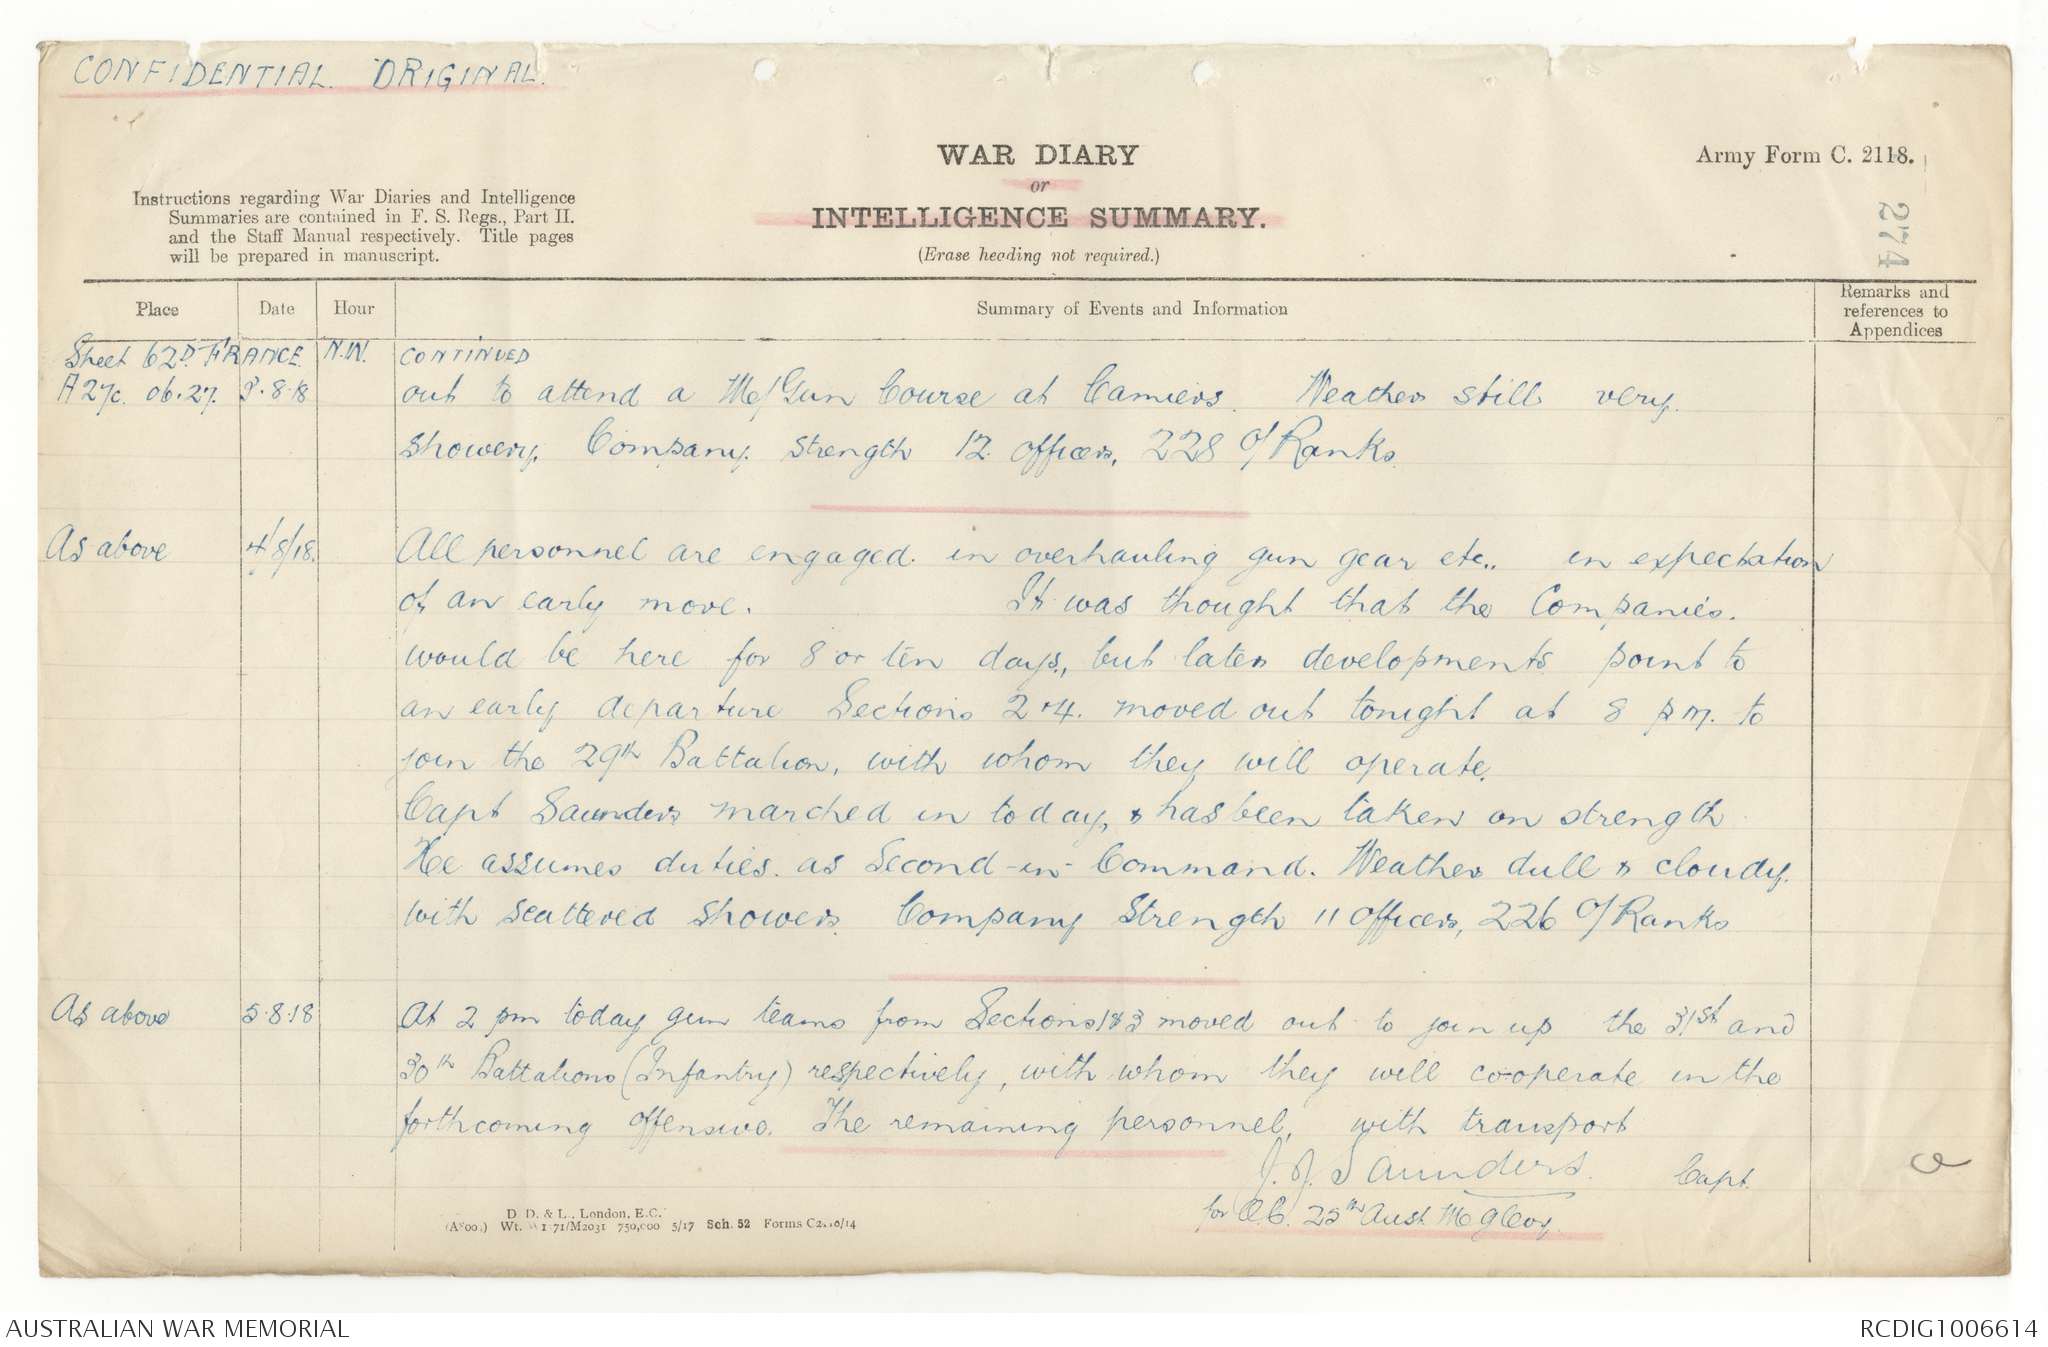 CONFIDENTIAL. ORIGINAL.
WAR DIARY
or
INTELLIGENCE SUMMARY.
(Erase heading not required.)
Army Form C. 2118.
274
Instructions regarding War Diaries and Intelligence
Summaries are contained in F. S. Regs., Part II.
and the Staff Manual respectively. Title pages
will be prepared in manuscript.
Place Date Hour Summary of Events and Information Remarks and references to Appendices
Sheet 62D. FRANCE. N.W. CONTINUED
A27c. 06.27. 3.8.18 out to attend a M/Gun Course at Camiers. Weather still very
showery. Company strength 12 officers, 228 O/Ranks
As above 4/8/18. All personnel are engaged in overhauling gun gear etc.. in expectation
of an early move. It was thought that the Companies.
would be here for 8 or ten days, but later developments point to
an early departure Sections 2 & 4. moved out tonight at 8 p.m. to
join the 29th Battalion, with whom they will operate.
Capt Saunders marched in today, & has been taken on strength
He assumes duties as Second-in-Command. Weather dull & cloudy.
with scattered showers. Company Strength 11 Officers, 226 O/Ranks
As above 5.8.18 At 2 pm today gun teams from Sections 1 & 3 moved out to join up the 31st and
30th Battalions (Infantry) respectively, with whom they will cooperate in the
forthcoming offensive. The remaining personnel, with transport
J. J. Saunders. Capt.
for O.C. 25th Aust. M G Coy.
D. D. & L., London, E.C.
Wt. 750,000 5/17 Sch. 52 Forms
AUSTRALIAN WAR MEMORIAL
RCDIG1006614